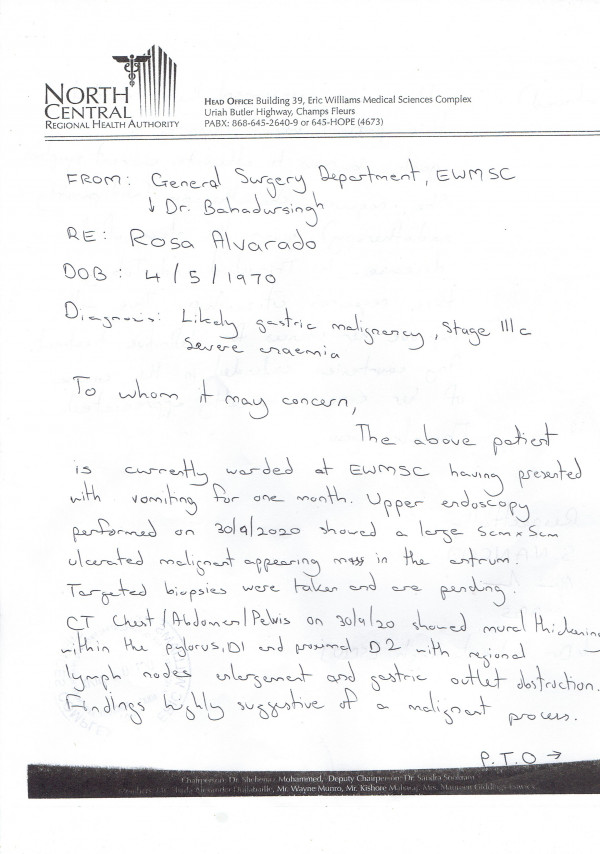 NORTH
CENTRAL
REGIONAL HEALTH AUTHORITY
HEAD OFFICE: Building 39, Eric Williams Medical Sciences Complex
Uriah Butler Highway, Champs Fleurs
PABX: 868-645-2640-9 or 645-HOPE (4673)
FROM: General Surgery Department, EWMSC
↓ Dr. Bahadursingh
RE: Rosa Alvarado
DOB: 4/5/1970
Diagnosis: Likely gastric malignancy, Stage IIIc
Severe anaemia
To whom it may concern,
The above patient
is currently warded at EWMSC having presented
with vomiting for one month. Upper endoscopy
performed on 30/9/2020 showed a large 5cm x 5cm
ulcerated malignant appearing mass in the antrum.
Targeted biopsies were taken and are pending.
CT Chest/Abdomen/Pelvis on 30/9/20 showed mural thickening
within the pylorus, D1 and proximal D2 with regional
lymph nodes enlargement and gastric outlet obstruction.
Findings highly suggestive of a malignant process.
P.T.O →
Chairperson: Dr. Mohammed, Deputy Chairperson: Dr. Sandra
Mr. Wayne Munro, Mr. Kishore